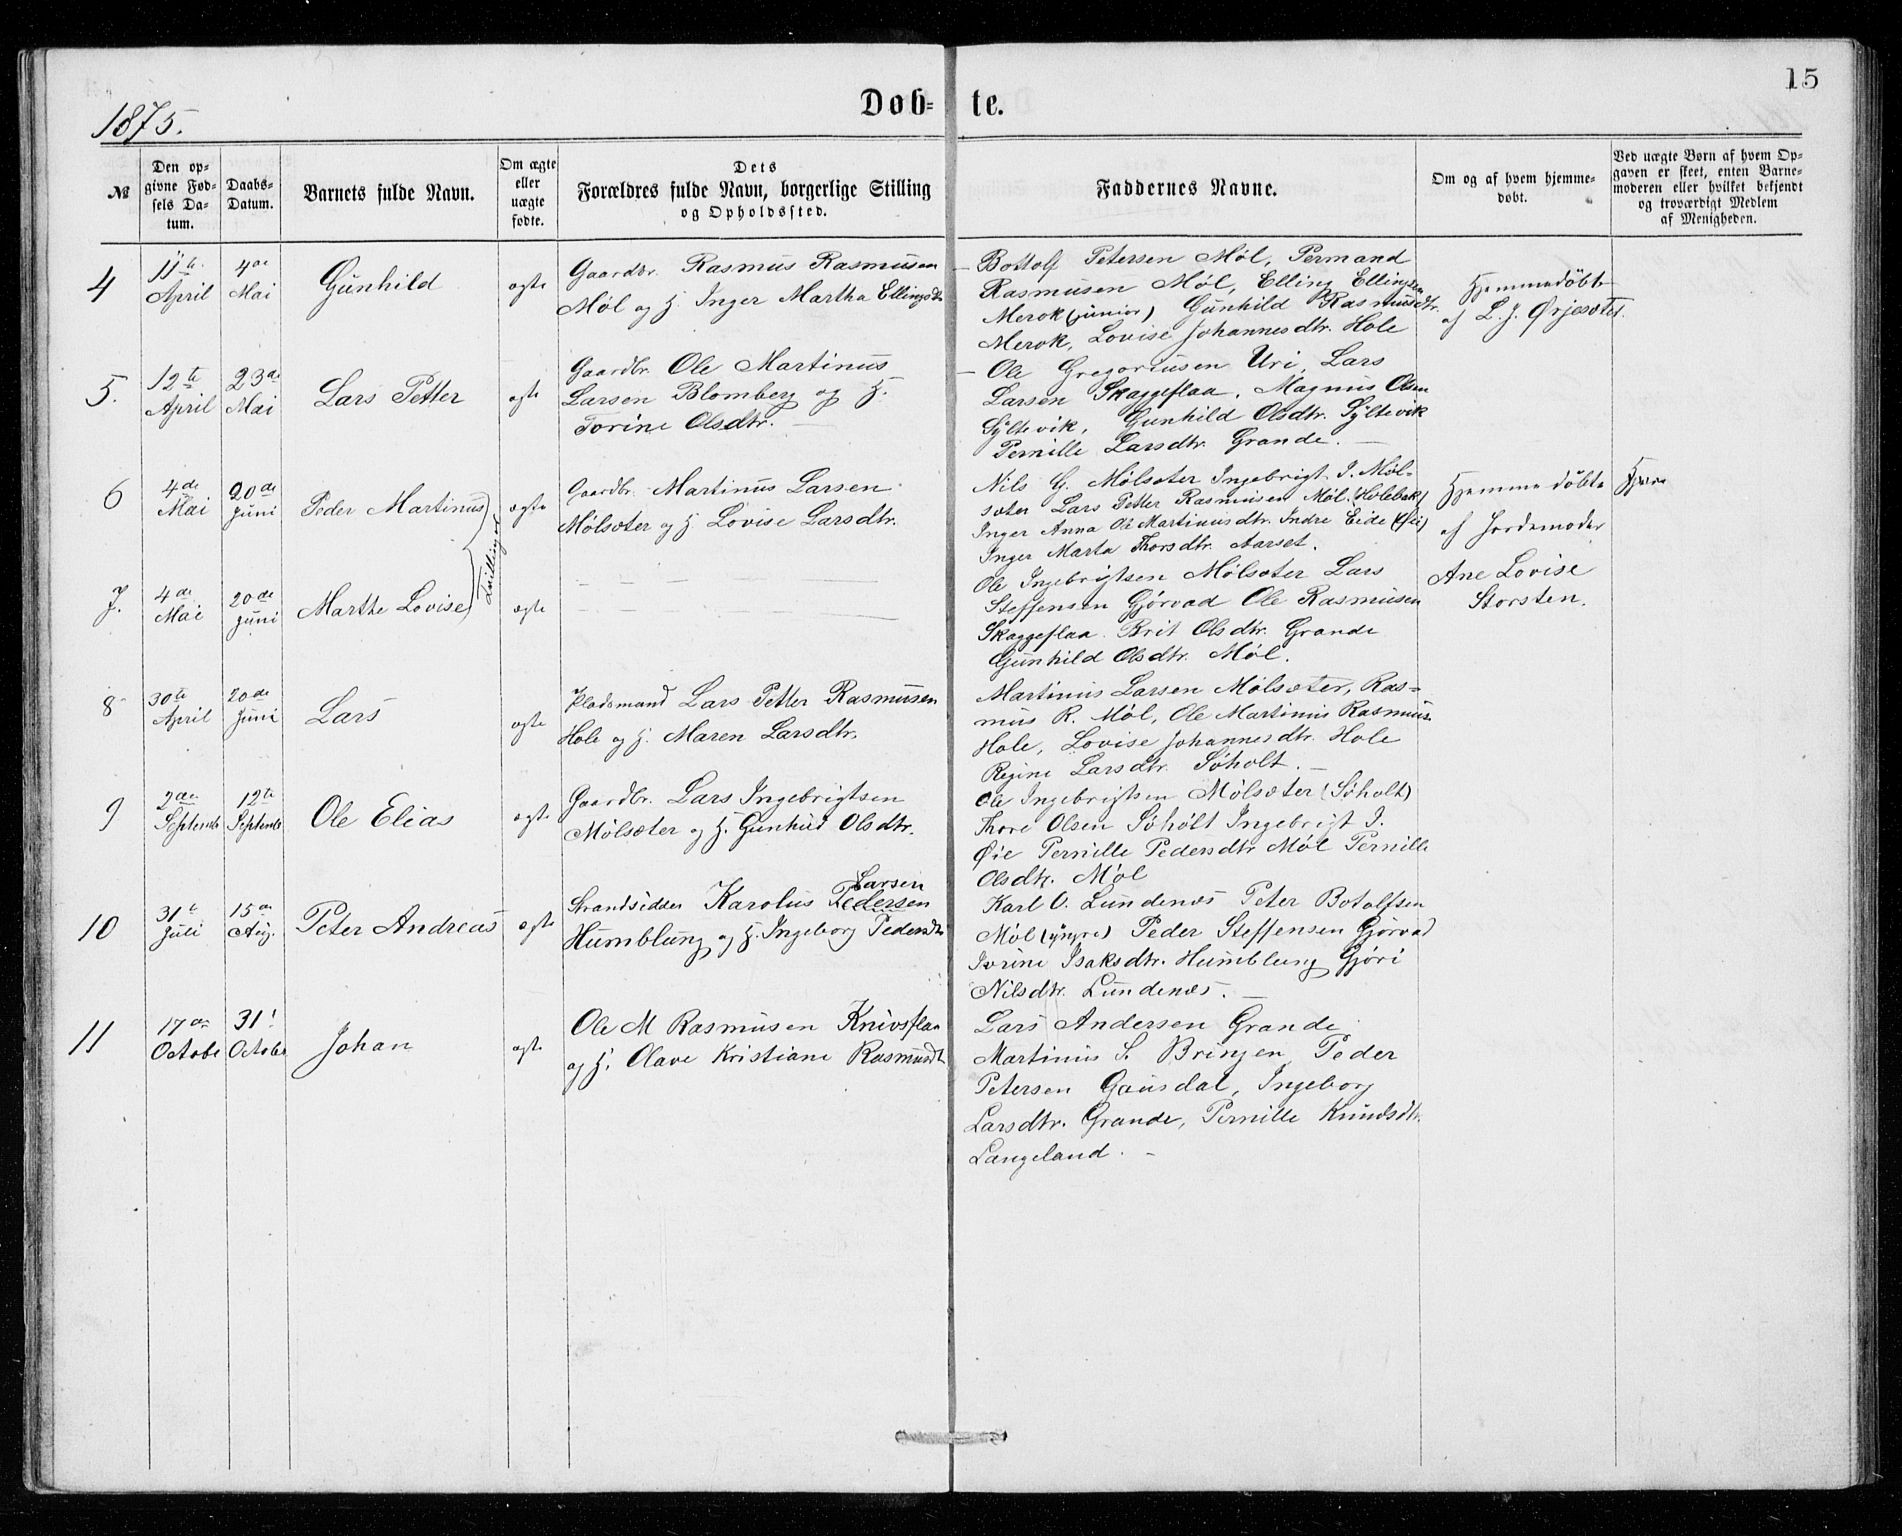 15
1875.
Døb- te.
№
Den opgivne Fødsels Datum.
Daabs-Datum.
Barnets fulde Navn.
Om ægte eller uægte fødte.
Dets Forældres fulde Navn, borgerlige Stilling og Opholdssted.
Faddernes Navne.
Om og af hvem hjemmedøbt.
Ved uægte Børn af hvem Opgaven er skeet, enten Barnemoderen eller hvilket bekjendt og troværdigt Medlem af Menigheden.
4
11te April
4de Mai
Gunhild
ægte
Gaardbr. Rasmus Rasmusen
Møl og H. Inger Martha Ellingsdtr
Bottolf Petersen Møl, Permand
Rasmusen Møl, Elling Ellingsen
Merok (junior) Gunhild Rasmusdtr.
Merok, Lovise Johannesdtr. Hole
Hjemmedøbte
af L. J. Ørjesæter.
5.
12te April
23de Mai
Lars Petter
ægte
Gaardbr. Ole Martinus
Larsen Blomberg og H.
Torine Olsdtr.
Ole Gregoriusen Uri, Lars
Larsen Skaggeflaa, Magnus Olsen
Syltevik, Gunhild Olsdtr. Syltevik
Pernille Larsdtr Grande.
6
4de Mai
20de Juni
Peder Martinus
Tvillinger
ægte
Gaardbr. Martinus Larsen
Mølsæter og H Lovise Larsdtr.
Nils G. Mølsæter Ingebrigt I. Møl-
sæter Lars Petter Rasmusen Møl. (Holebak)
Inger Anna Ole Martinusdtr. Indre Eide
Inger Marta Thorsdtr. Aarset.
Hjemmedøbte
af Jordemoder
Ane Lovise
Storsten.
7.
4de Mai
20de Juni
Marthe Lovise
ægte
— — —
Ole Ingebrigtsen Mølsæter Lars
Steffensen Gjørvad Ole Rasmusen
Skaggeflaa. Brit Olsdtr. Grande
Gunhild Olsdtr. Møl.
8
30te April
20de Juni
Lars
ægte
Pladsmand Lars Petter Rasmusen
Hole og H. Maren Larsdtr.
Martinus Larsen Mølsæter, Ras-
mus R. Møl, Ole Martinus Rasmus.
Hole, Lovise Johannesdtr. Hole
Regine Larsdtr. Søholt.
9
2den Septemb
12te Septemb
Ole Elias
ægte
Gaardbr. Lars Ingebrigtsen
Mølsæter og H. Gunhild Olsdtr.
Ole Ingebrigtsen Mølsæter (Søholt)
Thore Olsen Søholt Ingebrigt I.
Øie Pernille Pedersdtr Møl Pernille
Olsdtr. Møl
10
31te Juli
15de Aug.
Peter Andreas
ægte
Strandsidder Karolus Pedersen Larsen
Humblung og H. Ingeborg Pedersdtr
Karl O. Lundenes Peter Botolfsen
Møl (yngre) Peder Steffensen Gjørvad
Ivrine Isaksdtr. Humblung Gjøri
Nilsdtr. Lundenes.
11
17de Octobe
31! Octobe
Johan
ægte
Ole M Rasmusen Knivsflaa
og H. Olave Kristiane Rasmusdtr
Lars Andersen Grande
Martinus S. Bringen Peder
Petersen Gausdal, Ingeborg
Larsdtr. Grande, Pernille Knudsdtr.
Langeland.